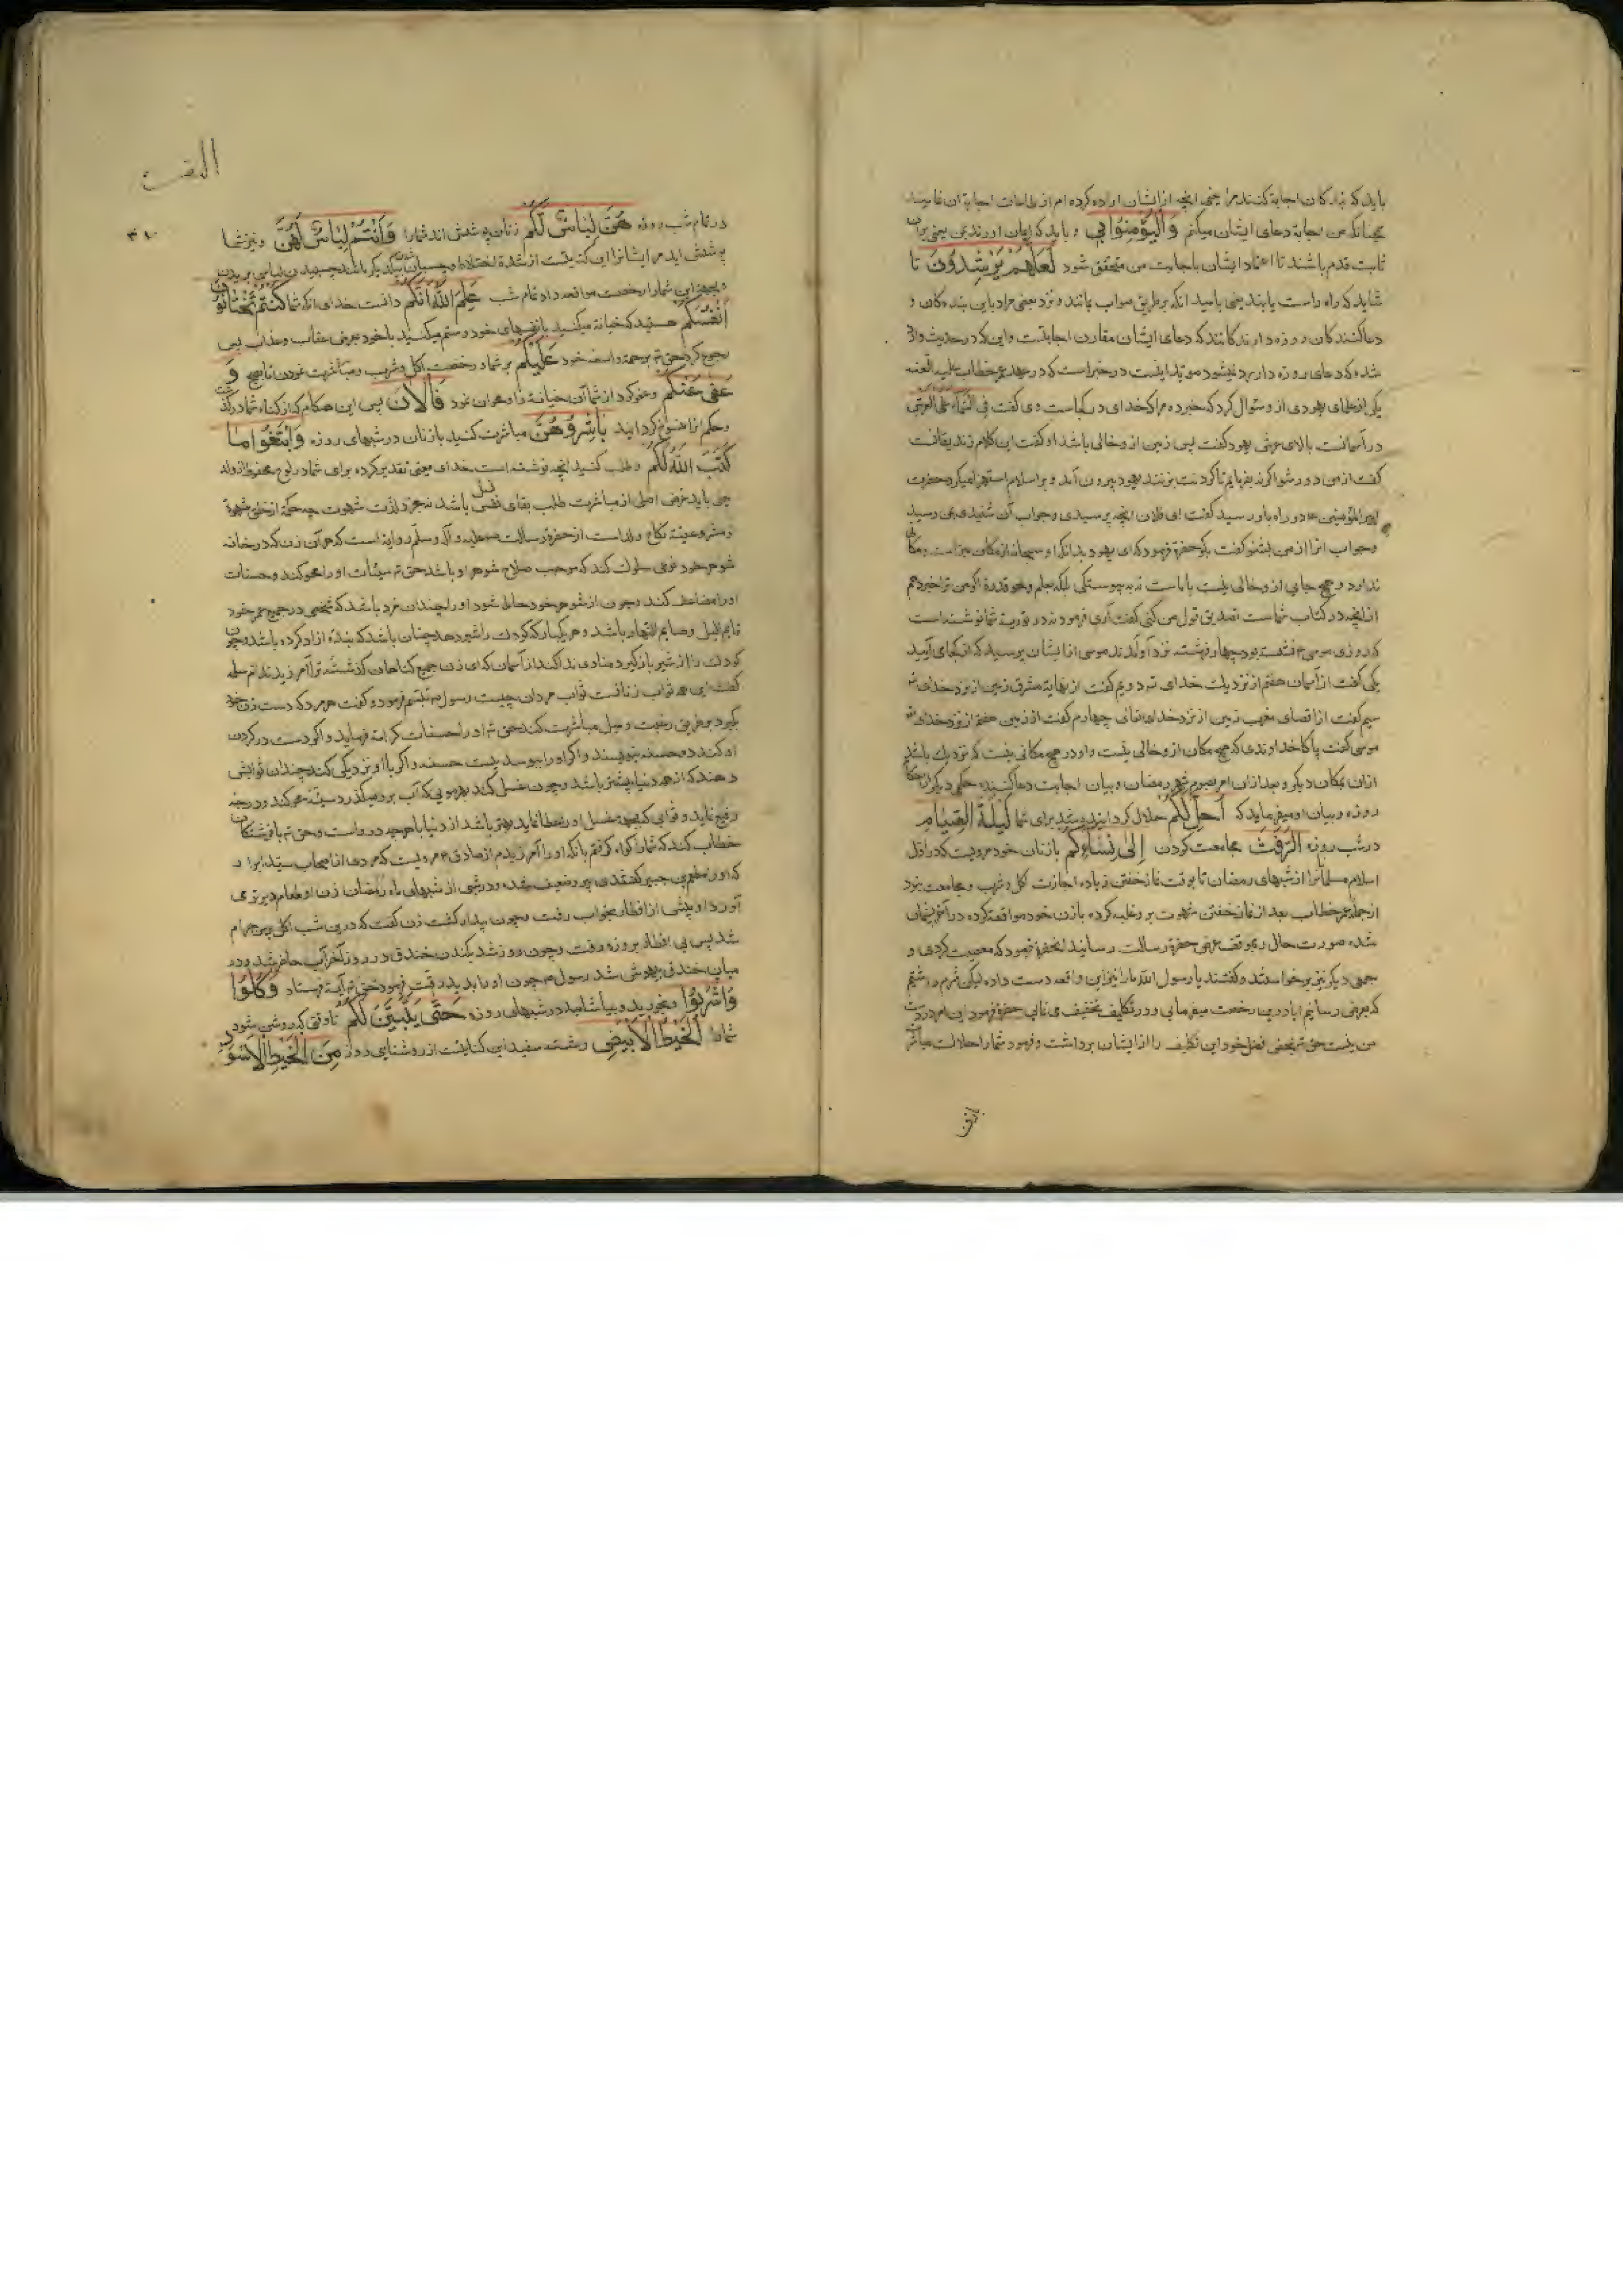 باید که بندکان اجابة کنند مرا یعنی انچه از ایشان اراده کرده ام از طاعات اجابة ان نمایند
همچنانکه من اجابة دعای ایشان میکنم وَالْیُؤْمِنُوا بِی و باید که ایمان اورند بمن یعنی بران
ثابت قدم باشند تا اعتماد ایشان باجابت من متحقق شود لَعَلَّهُمْ یَرْشُدُونَ تا
شاید که راه راست یابند یعنی بامید انکه بر طریق صواب بمانند و نزد بعضی مراد باین بندهکان و
دعا کنندکان روزه دارندکانند که دعای ایشان مقارن اجابتست و این که در حدیث وارد
شده که دعای روزه دار رد نمیشود مؤید اینست در خبر است که در عهد عمر خطاب علیه اللعنه
یکی از علمای یهود از و سئوال کرد که خبر ده مرا که خدای در کجاست وی گفت فی السماء علی العرش
در آسمانست بالای عرش یهود کفت پس زمین از و خالی باشد او کفت این کلام زندیقانست
کفت از من دور شو اگر نه بفرمایم تا کردنت بزنند یهود بیرون آمد و بر اسلام استهزا میکرد حضرت
امیر المؤمنین ۴ در راه باو رسید کفت ای فلان انچه پرسیدی و جواب آن شنیدی بمن رسید
و جواب انرا از من بشنو کفت بگو حضرة فرمود که ای یهود بدانکه او سبحانه از مکان مبراست و مکان
ندارد و هیچ جای از و خالی نیست با ماست نه به پیوستگی بلکه بعلم و نحو قدرة اکر من ترا خبر دهم
از انچه در کتاب شماست تصدیق قول من کنی کفت آری فرمود نه در توریة شما نوشته است
که روزی موسی ۴ نشسته بود چهار فرشته نزد او آمدند موسی از ایشان پرسید که از کجای آیید
یکی کفت از آسمان هفتم از نزدیك خدای تع دویم کفت از نهایة مشرق زمین از نزد خدای تع
سیم کفت از اقصای مغرب زمین از نزد خدای تعالی چهارم کفت از زمین هفتم از نزد خدای تع
موسی کفت پاکا خداوندی که هیچ مکان از و خالی نیست و او در هیچ مکانی نیست که نزدیك باشد
از ان بمکان دیکر و بعد از ان امر بصوم شهر رمضان و بیان اجابت دعا کننده حکمی دیکر از احکام
روزه و بیان او میفرماید که أُحِلَّ لَكُمْ حلال کردانیده شد برای شما لَیْلَةَ الصِّیَامِ
در شب روزه الرَّفَثُ مجامعت کردن إِلَی نِسَائِكُمْ بازنان خود مرویست که در اول
اسلام مسلمانرا از شبهای رمضان تا بوقت نماز خفتن زیاده اجازت اکل و شرب و مجامعت نبود
از جمله عمر خطاب بعد از نماز خفتن شهوت بر و غلبه کرده با زن خود مواقعه کرده در آخر پشیمان
شده صورت حال را بموقف عرض حضرة رسالت رسانید انحضرة فرمود که معصیت کردی و
جمعی دیکر نیز برخواستند و کفتند یا رسول الله ما را نیز این واقعه دست داده لیکن شرم داشتیم
که بعرض رسانیم ایا در این رخصت میفرمایی و در تکلیف تخفیف می نمایی حضرة فرمود این امر در دست
من نیست حق تع بمحض فضل خود این تکلیف را از ایشان برداشت و فرمود شما را حلالست مباشرة
بازنان
البقرة
۳۱۰
در تمام شب روزه هُنَّ لِبَاسٌ لَكُمْ زنان پوشش اند شما را وَأَنْتُمْ لِبَاسٌ لَهُنَّ و نیز شما
پوشش اید مر ایشانرا این کنایتست از شدة اختلاط و چسپان بیکدیکر
و بجهة این شما را رخصت مواقعه داد تمام شب عَلِمَ اللّٰهُ أَنَّكُمْ دانست خدای انکه شما كُنْتُمْ تَخْتَانُونَ
أَنْفُسَكُمْ هستید که خیانة میکنید با نفسهای خود و ستم میکنید با خود بعرض عقاب و عذاب پس
رجوع کرد حق تع برحمت واسعه خود عَلَیْكُمْ بر شما و رخصت اکل و شرب و مباشرت نمودن تا صبح وَ
عَفَی عَنْكُمْ و عفو کرد از شما آن خیانة را و محو ان نمود فَالْآنَ پس این هنکام که از کناه شما درگذشت
و حکم انرا منسوخ کردانید بَاشِرُوهُنَّ مباشرت کنید بازنان در شبهای روزه وَابْتَغُوا مَا
كَتَبَ اللّٰهُ لَكُمْ و طلب کنید انچه نوشته است خدای یعنی تقدیر کرده برای شما در لوح محفوظ از ولد
می باید غرض اصلی از مباشرت طلب بقای نسل باشد نه مجرد لذت شهوت چه حکمة از خلق شهوة
و مشروعیة نکاح ولد است از حضرة رسالت صلی علیه و آله و سلم روایة است که هر آن زن که در خانه
شوهر خود نوعی سلوك کند که موجب صلاح شوهر او باشد حق تع سیئات او را محو کند و حسنات
او را مضاعف کند و چون از شوهر خود حامله شود او را چندان مزد باشد که شخصی در جمیع عمر خود
قایم اللیل و صایم النهار باشد و هر یکبار که کودك را شیر دهد چنان باشد که بنده ازاد کرده باشد و چون
کودك را از شیر باز کیرد منادی ندا کند از آسمان که ای زن جمیع کناهان کذشته ترا آمرزیدند ام سلمه
کفت این همه ثواب زنانست ثواب مردان چیست رسول تبسم فرمود و کفت هر مرد که دست زن خود
بگیرد بر طریق رغبت و میل مباشرت کند حق تع او را حسنات کرامة فرماید و اکر دست در کردن
او کند ده حسنه بنویسند و اکر او را ببوسد بیست حسنه و اکر با او نزدیکی کند چندان ثوابش
دهند که از همه دنیا بیشتر باشد و چون غسل کند بهر مویی که آب برو میگذرد سیئه محو کند و درجه
رفع نماید و ثوابی که بجهة غسل او را عطا نماید بهتر باشد از دنیا با هر چه دروست و حق تع با فرشتکان
خطاب کند که شما را کواه گرفتم بانکه او را آمرزیدم از صادق ۴ مرویست که مردی از اصحاب سید ابرار
که او را مطعم بن جبیر کفتندی پیر و ضعیف شده بود در شبی از شبهای ماه رمضان زن او طعام دیر تر
آورد او پیش از افطار بخواب رفت و چون بیدار کشت زن کفت که درین شب اکل بر من حرام
شد پس بی افطار بروزه رفت و چون روز شد بکندن خندق در روز احزاب حاضر شد و در
میان خندق بیهوش شد رسول ۴ چون او را بدید رقت فرمود حق تع آیة فرستاد وَكُلُوا
وَاشْرَبُوا و بخورید و بیاشامید در شبهای روزه حَتَّى یَتَبَیَّنَ لَكُمْ تا وقتی که روشن شود
شما را الْخَیْطُ الْأَبْیَضُ رشته سفید این کنایتست از روشنایی روز مِنَ الْخَیْطِ الْأَسْوَدِ